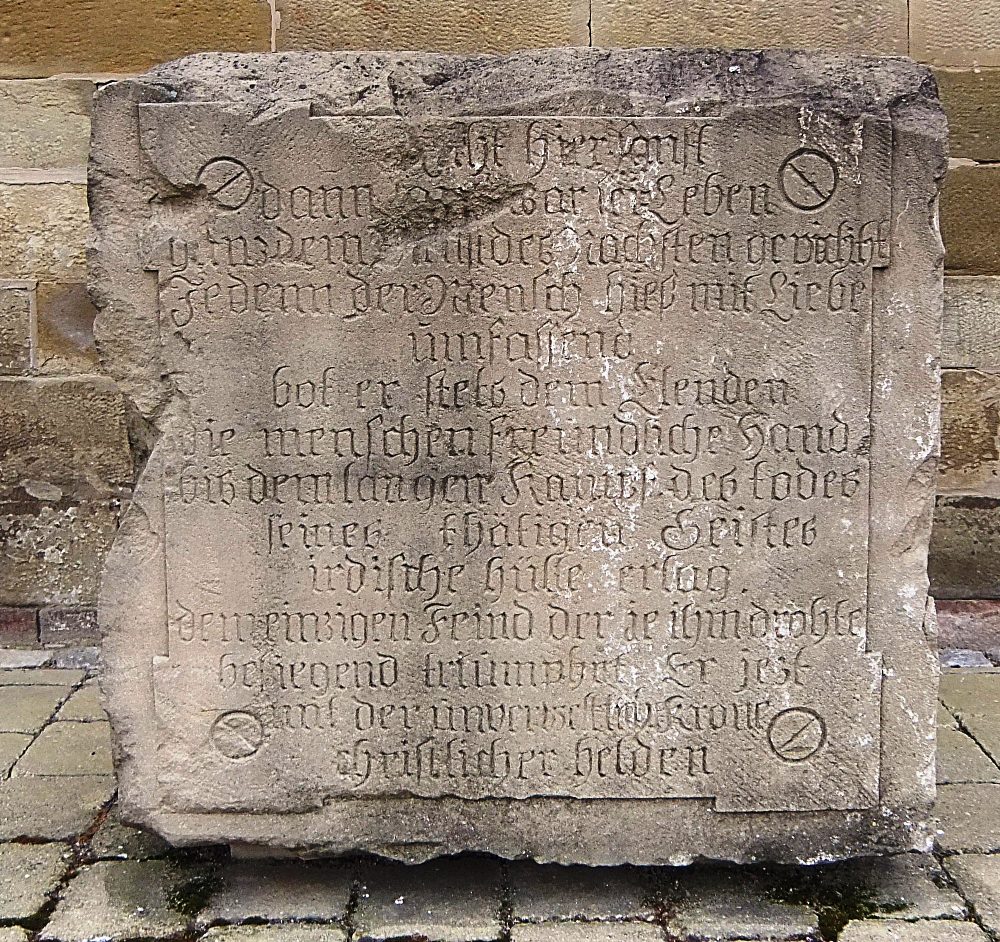 hier sanft
dann war sei Leben
ganz dem des Nächsten geweiht
Jedenn der Mensch hies mit Liebe
umfassend
bot er stets dem Elenden
die menschen freundliche Hand
bis dem langen Kampf des todes
seines thätigen Geistes
irdische hülle erlag.
dem einzigen Feind der je ihm drohte
besiegend triumphrt Er jezt
mit der unverwelklich Krone
christlicher helden